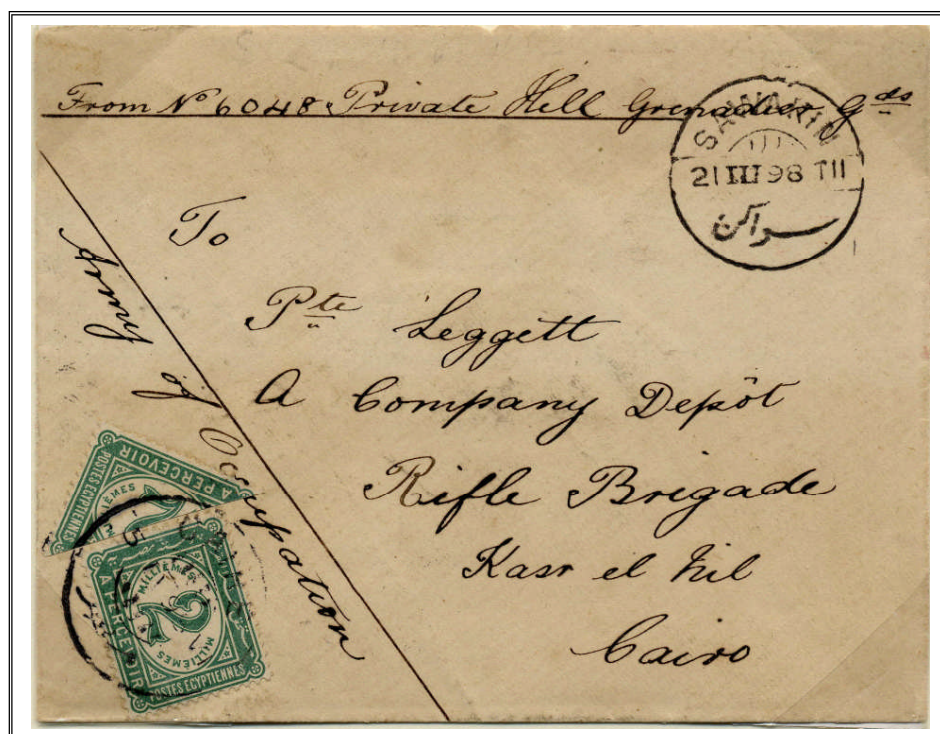 From Nº 6048 Private Hell Grenadier Gds
SAWAKIN
21 III 98 T11
سواكن
To
Pte Leggett
A Company Depôt
Rifle Brigade
Kasr el Nil
Cairo
Army of Occupation
A PERCEVOIR
POSTES EGYPTIENNES
MILLIÈMES
2
MILLIÈMES
A PERCEVOIR
POSTES EGYPTIENNES